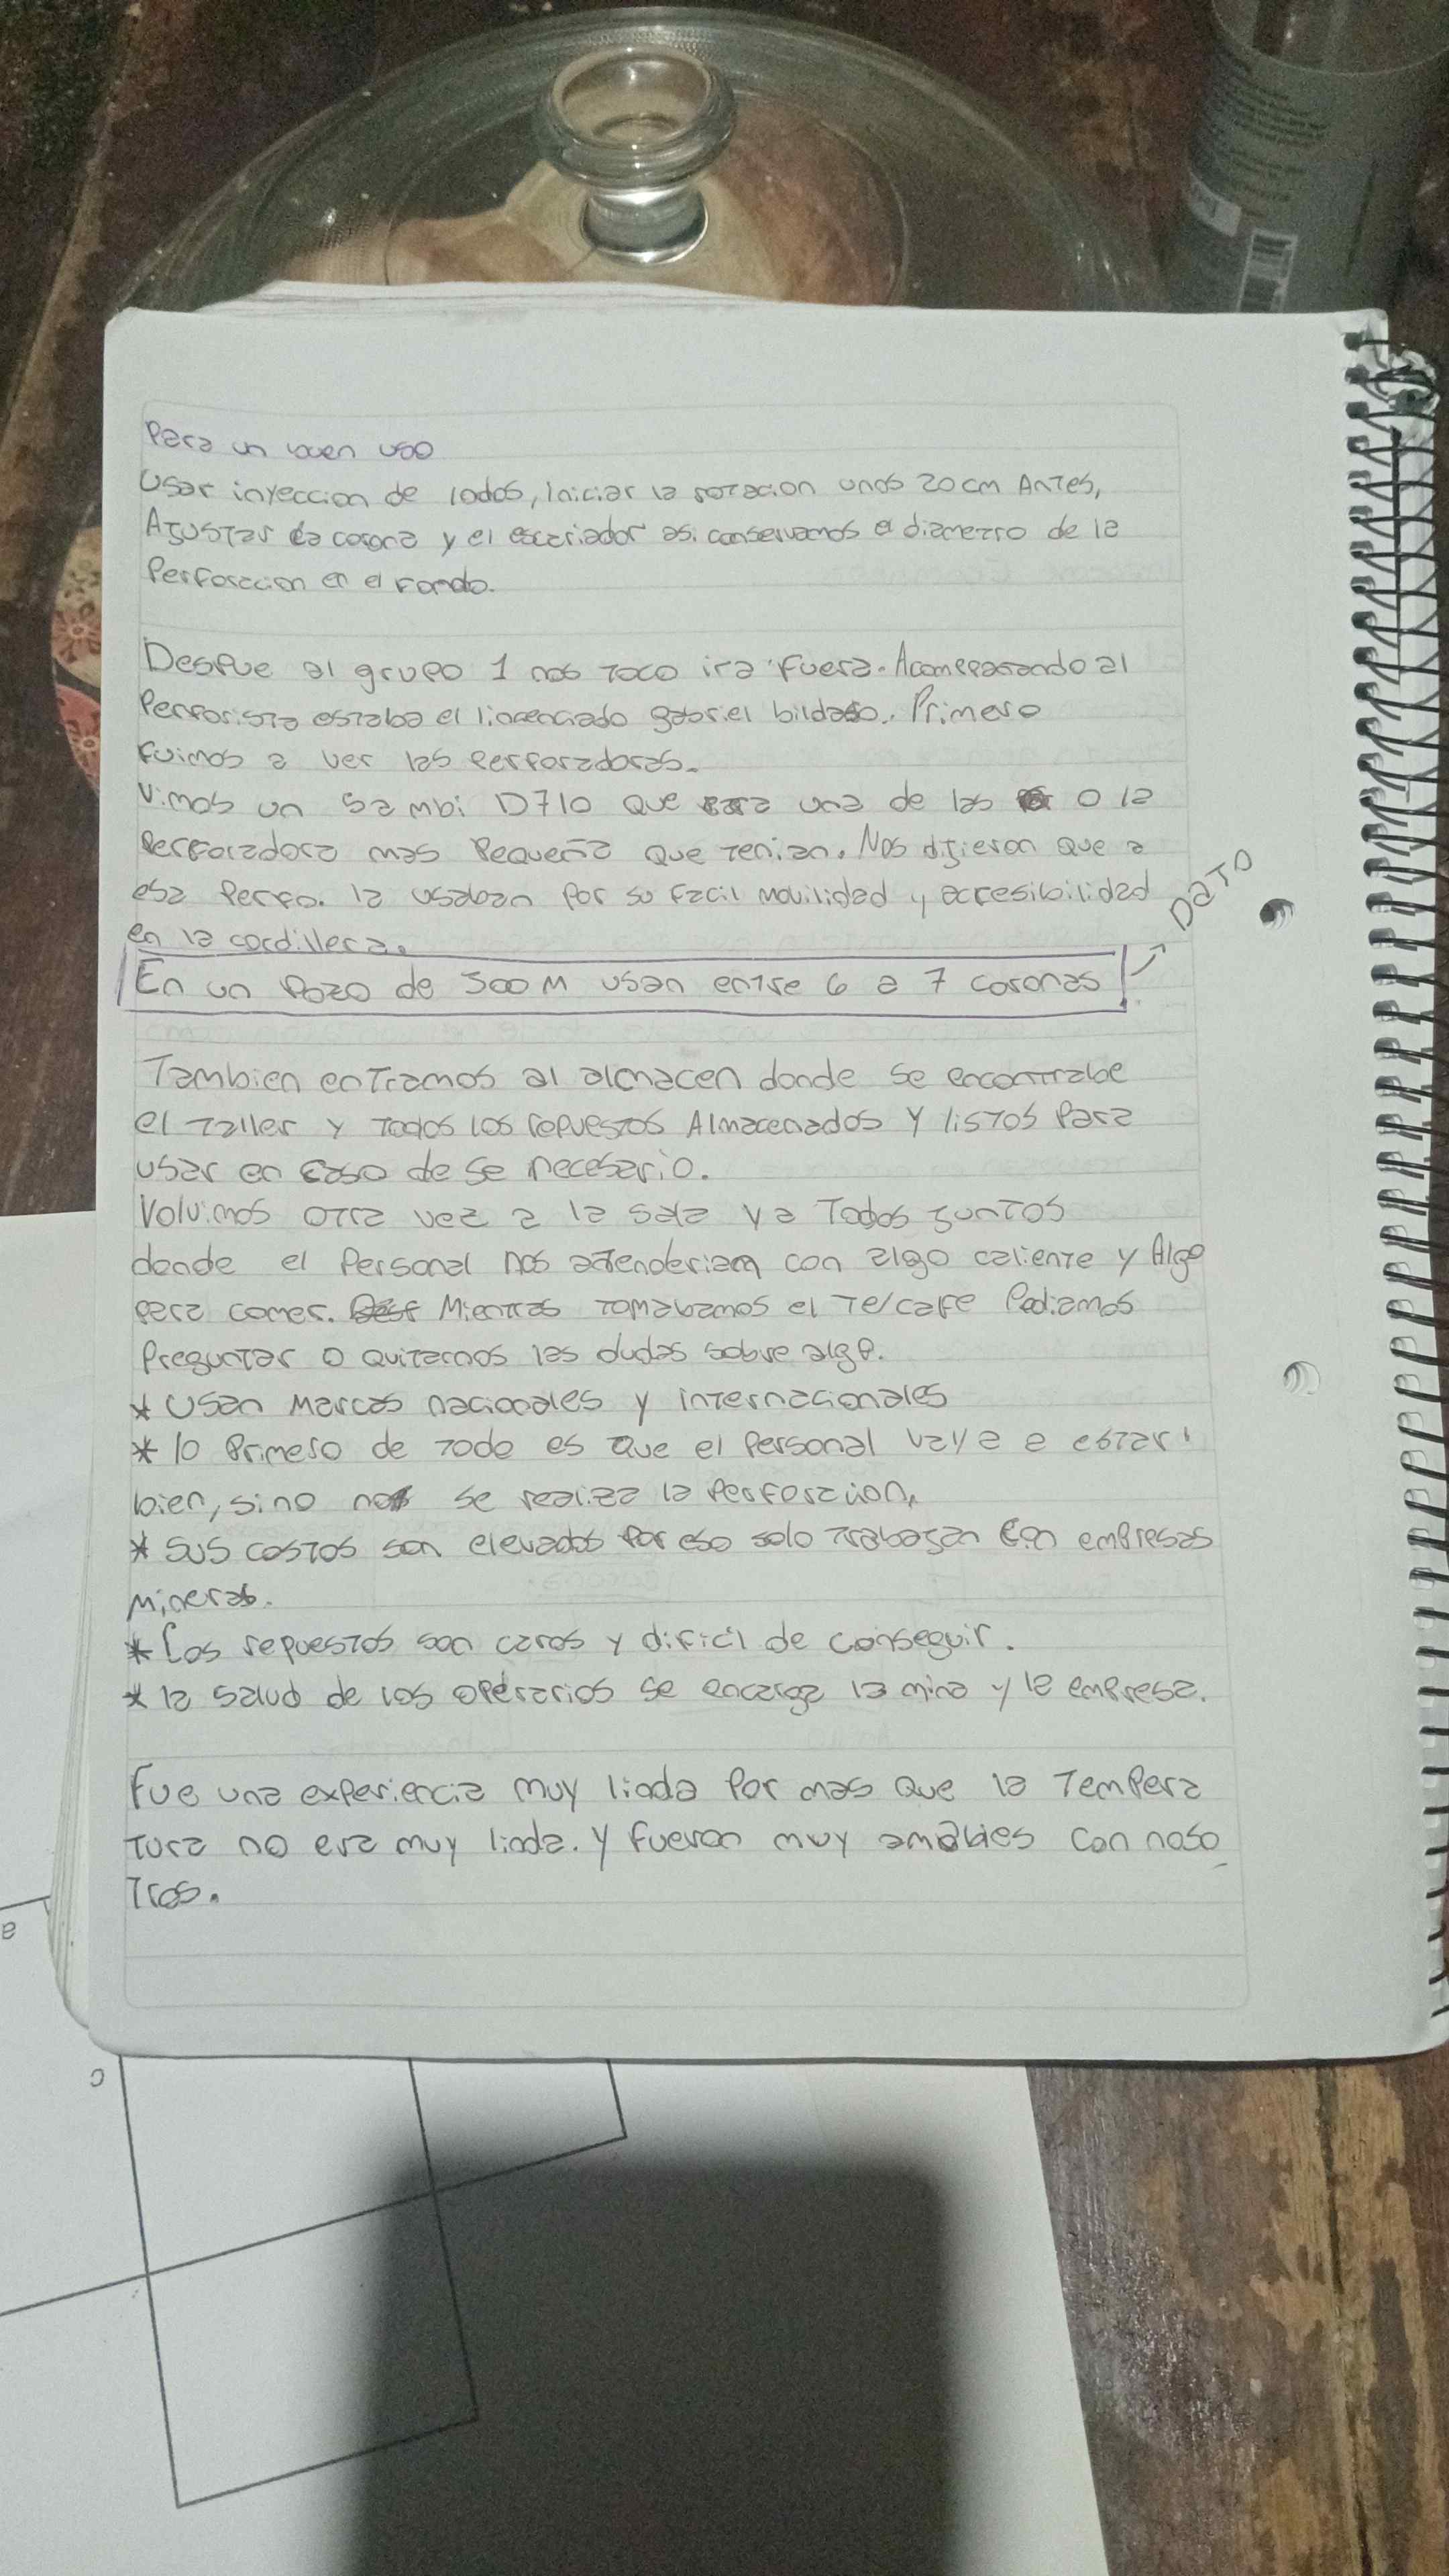 Para un buen uso
Usar inyeccion de lodos, Iniciar la rotacion unos 20 cm Antes,
Ajustar la corona y el escariador asi conservamos el diametro de la
Perforacion en el fondo.
Despue al grupo 1 nos toco ir a fuera. Acompañando al
Perforista estaba el licenciado gabriel bildoso. Primero
fuimos a ver las perforadoras.
Vimos un Sambi D710 que era una de las o la
Perforadora mas Pequeña que tenian. Nos dijieron que a
esa Perfo. la usaban por su facil movilidad y accesibilidad
en la cordillera.
En un Pozo de 300 M usan entre 6 a 7 coronas
DATO
Tambien entramos al almacen donde se encontrabe
el taller y todos los repuestos Almacenados y listos Para
usar en caso de se necesario.
Volvimos otra vez a la sala ya Todos juntos
donde el Personal nos atenderian con algo caliente y Algo
para comer. Mientras tomabamos el Te/cafe Podiamos
Preguntar o quitarnos las dudas sobre algo.
* Usan Marcas nacionales y internacionales
* lo Primero de todo es que el Personal vaya a estar
bien, sino no se realiza la Perforacion.
* Sus costos son elevados por eso solo trabajan con empresas
Mineras.
* Los repuestos son caros y dificil de conseguir.
* la salud de los operarios se encarga la mina y la empresa.
Fue una experiencia muy linda Por mas que la Tempera
tura no era muy linda. y fueron muy amables con noso
Tros.
a
c